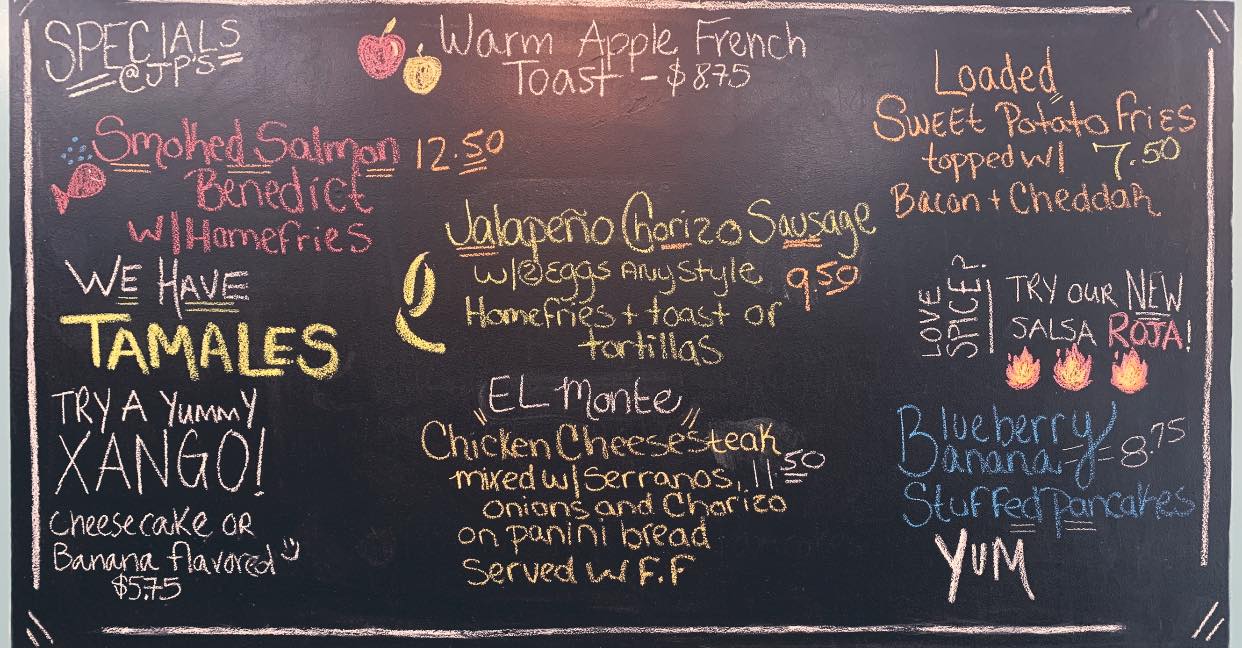 SPECIALS
@JP'S
Warm Apple French
Toast - $8.75
Smoked Salmon 12.50
Benedict
w/Homefries
WE HAVE
TAMALES
TRY A YUMMY
XANGO!
Cheesecake OR
Banana flavored
$5.75
Jalapeño Chorizo Sausage
w/2 Eggs Any Style 9.50
Homefries + toast or
tortillas
"EL Monte"
Chicken Cheesesteak
mixed w/ Serranos, 11.50
onions and Chorizo
on panini bread
Served w F.F
Loaded
Sweet Potato Fries
topped w/ 7.50
Bacon + Cheddar
LOVE
SPICE?
TRY OUR NEW
SALSA ROJA!
Blueberry
Banana - 8.75
Stuffed pancakes
YUM